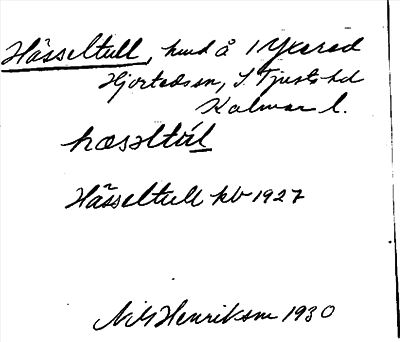 Hässeltull, hmd å 1 Ykered
Hjorteds sn, S. Tjusts hd
Kalmar l.
hæsəltúl
Hässeltull kb 1927
Nils Henriksson 1930